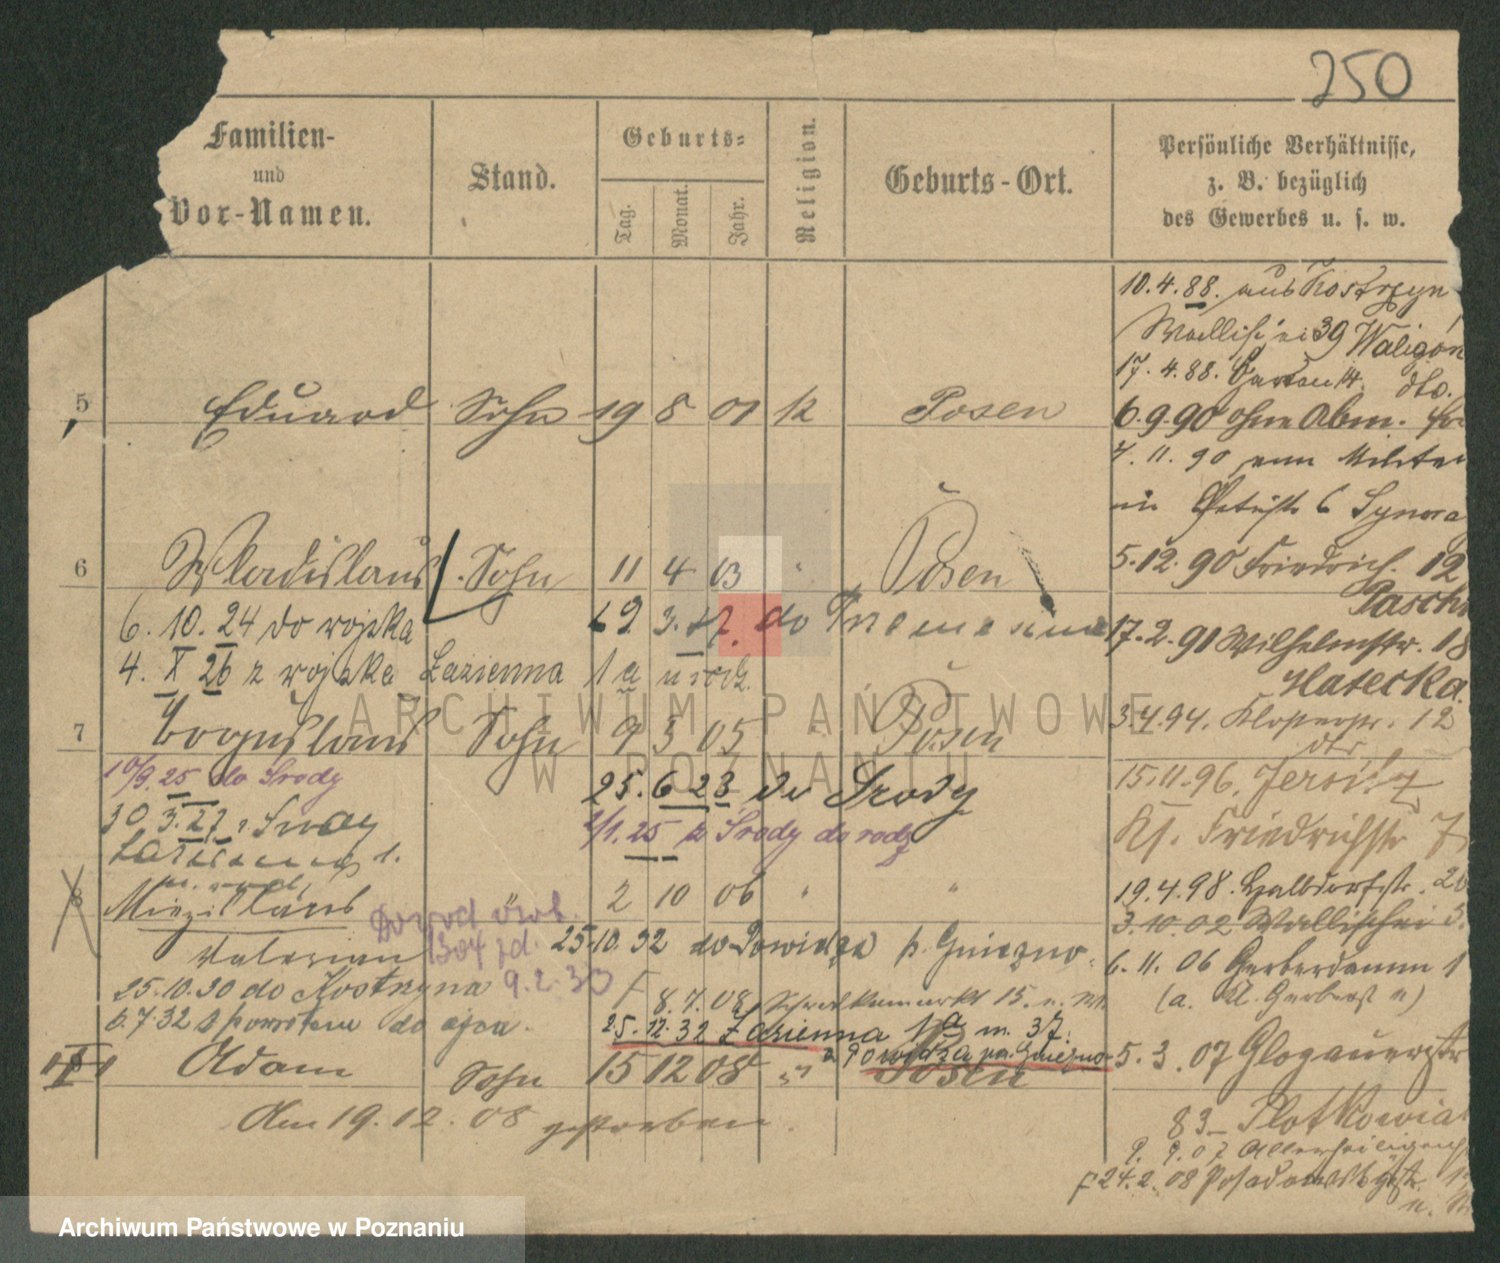 250
Familien-
und
Vor-Namen.
Stand.
Geburts-
Tag.
Monat.
Jahr.
Religion.
Geburts-Ort.
Persönliche Verhältnisse,
z. B. bezüglich
des Gewerbes u. s. w.
10.4.88. aus Kostrzyn
Wallischei 39 Waligór
17.4.88. Garten 14. dto.
5 Eduard Sohn 19 8 01 k Posen
6.9.90 ohne Abm.
7.11.90 zum Militär
in 6 Synora
6 Wladislaus Sohn 11 4 03 " Posen
5.12.90 Friedrich. 12
6.10.24 do wojska 3.27. do
17.2.91 Wilhelmstr. 18
4.X 26 z wojska Łazienna 1a u rodz.
Hatecka.
7 Boguslaus Sohn 9 3 05 " Posen
3.4.94. Klosterstr. 12
dto
10/9.25 do Środy 25.6.23 do Środy
15.11.96. Jersitz
30.3.27 z Środy 2/1.25 z Środy do rodz
Kl. Friedrichstr 7
Łazienna 1.
8 Miezislaus 2 10 06 " "
19.4.98. Halbdorfstr. 20
Dowód osob.
3.10.02 Wallischei 3.
Valerian 1304 jd. 25.10.32 do Powidza p. Gniezno.
6.11.06 Gerberdamm 1
25.10.30 do Kostrzyna 9.2.33 8.7.08 15.
(a. Kl. Gerberst)
6.7.32 z powrotem do ojca. 25.12.32 Łazienna 1a m. 37.
z Powidza pow. Gniezno
Adam Sohn 15 12 08 " Posen
5.3.07 Glogauerstr
Am 19.12.08 gestorben.
83 Plotkowiak
9.9.07 Allerheiligenstr
24.2.08 Posadowskystr.
ARCHIWUM PAŃSTWOWE
W POZNANIU
Archiwum Państwowe w Poznaniu